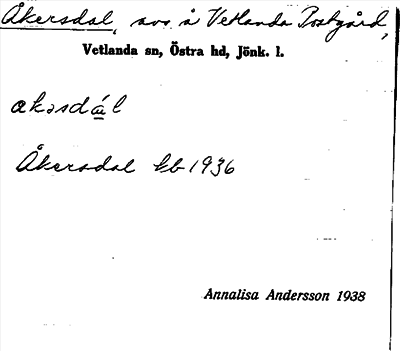 Åkersdal, avs. å Vetlanda Prästgård,
Vetlanda sn, Östra hd, Jönk. l.
åkəsdál
Åkersdal kb 1936
Annalisa Andersson 1938